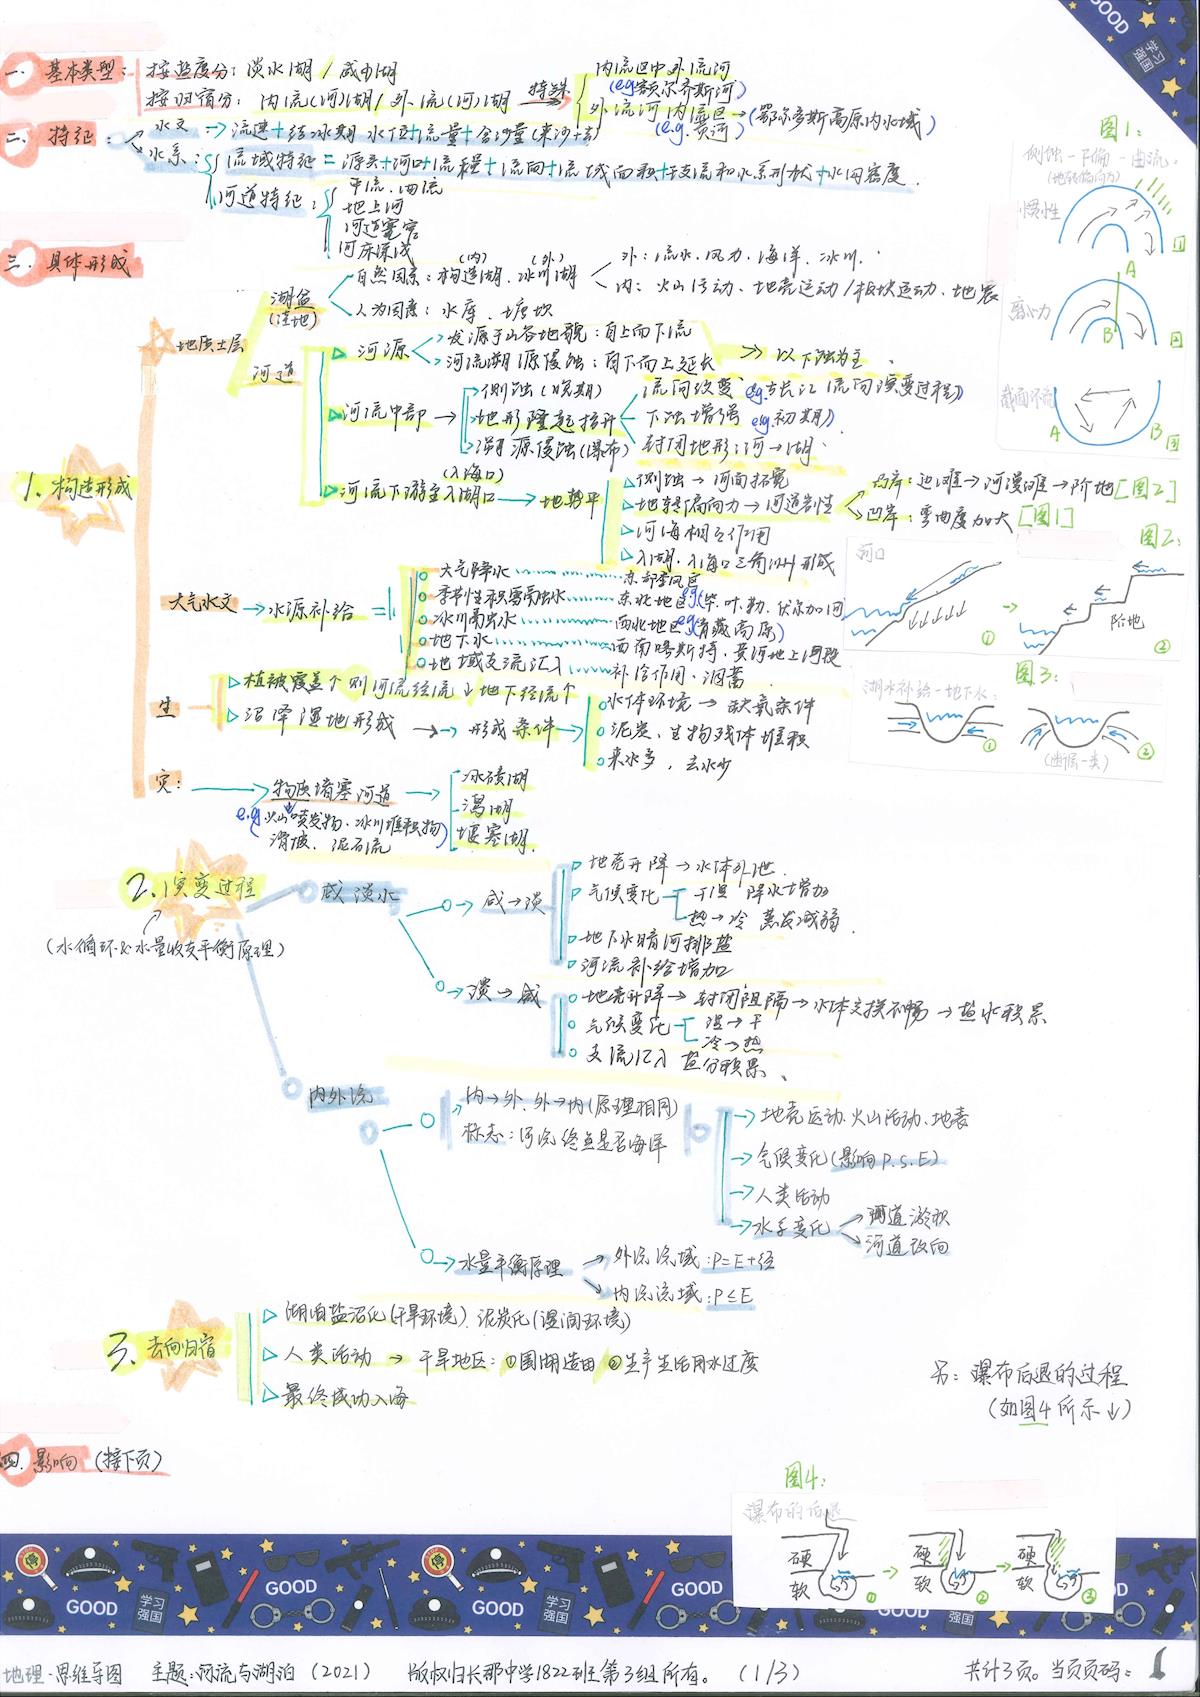 GOOD
学习强国
一. 基本类型: 按盐度分: 淡水湖 / 咸水湖
按归宿分: 内流(河)湖 / 外流(河)湖 特殊
内流区中外流河
(e.g.额尔齐斯河)
外流河内流区→(鄂尔多斯高原内水域)
(e.g.黄河)
二. 特征:
水文→流速+结冰期 水位+流量+含沙量
水系: 流域特征=源头+河口+流程+流向+流域面积+干支流和水系形状+水网密度.
河道特征:
地上河
河道宽窄
河床深浅
三. 具体形成
湖盆
(洼地)
自然因素: 构造湖(内). 冰川湖(外)
外: 流水. 风力. 海洋. 冰川.
内: 火山活动、地壳运动/板块运动、地震
人为因素: 水库、塘坝
1. 构造形成
地质土层
河道
河源
发源于山谷地貌: 自上而下流
河流溯源侵蚀: 自下而上延长
>> 以下蚀为主.
河流中部
侧蚀(晚期)
地形隆起抬升
溯源侵蚀(瀑布)
流向改变 e.g.古长江流向演变过程)
下蚀增强 e.g.初期)
封闭地形: 河→湖.
河流下游至入湖口(入海口)→地势平
侧蚀→河面拓宽
地转偏向力→河道岩性
河海相互作用
入湖、入海口三角洲形成
凸岸: 边滩→河漫滩→阶地[图2]
凹岸: 弯曲度加大[图1]
大气水文→水源补给
大气降水……东部季风区
季节性积雪融水……东北地区(e.g.毕、叶、勒、伏尔加河
冰川融水……西北地区(e.g.青藏高原)
地下水……西南喀斯特、黄河地上河段
地域支流汇入……补给作用、涸蓄
生
植被覆盖↑ 则河流径流↓地下径流↑
沼泽湿地形成→形成条件
水体环境→缺氧条件
泥炭、生物残体堆积
来水多, 去水少
灾:
物质堵塞河道
e.g.(火山喷发物、冰川堆积物)
滑坡、泥石流
冰碛湖
潟湖
堰塞湖
2. 演变过程
(水循环&水量收支平衡原理)
咸淡水
咸→淡
地壳升降→水体外泄.
气候变化
干湿 降水增加
热→冷 蒸发减弱
地下水暗河排盐
河流补给增加
淡→咸
地壳升降→封闭阻隔→水体交换不畅→盐水积累
气候变化
湿→干
冷→热
支流汇入 盐分积累、
内外流
内→外、外→内(原理相同)
标志: 河流终点是否海洋
地壳运动、火山活动、地表
气候变化(影响P.S.E)
人类活动
水系变化
河道淤积
河道改向
水量平衡原理
外流流域: P=E+径
内流流域: P≤E
3. 去向归宿
湖泊盐沼化(干旱环境)、泥炭化(湿润环境)
人类活动→干旱地区: ①围湖造田 ②生产生活用水过度
最终成功入海
四. 影响(接下页)
图1:
侧蚀-下偏-曲流:
(地转偏向力)
惯性
①
A
离心力
B
②
截面环流
A
B
③
图2:
河口
①
阶地
②
图3:
湖水补给-地下水:
①
②
(断层一类)
另: 瀑布后退的过程
(如图4所示↓)
图4:
瀑布的后退
硬
软
①
硬
软
②
硬
软
③
GOOD
GOOD
学习强国
GOOD
GOOD
学习强国
地理·思维导图 主题: 河流与湖泊(2021) 版权归长郡中学1822班第3组所有。 (1/3) 共计3页。当页页码: 1